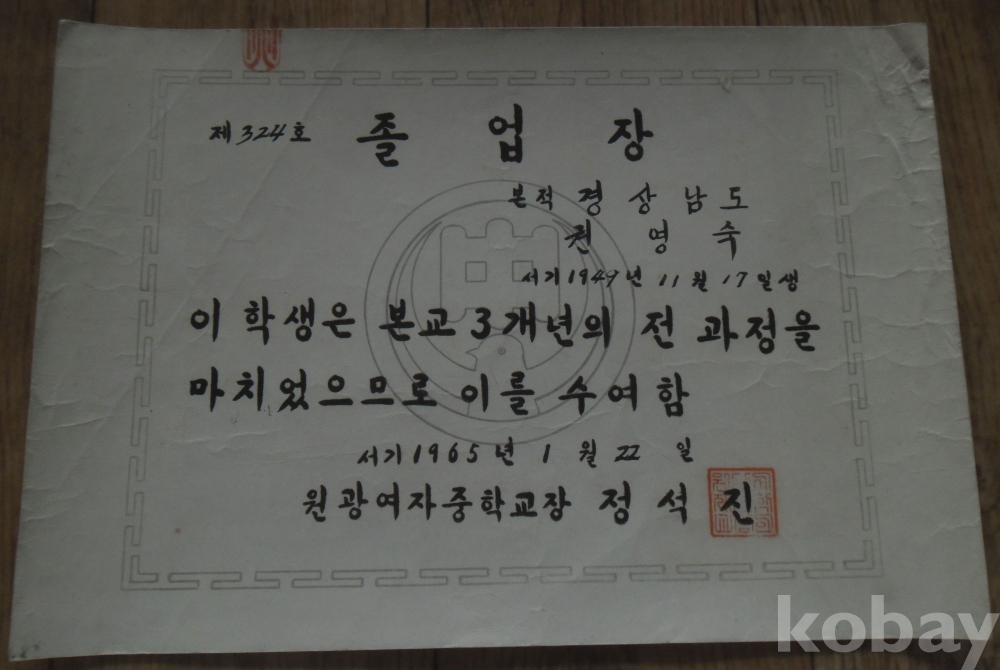 제324호 졸업장
본적 경상남도
권영숙
서기1949년 11월 17일생
이 학생은 본교 3개년의 전 과정을
마치었으므로 이를 수여함
서기1965년 1월 22일
원광여자중학교장 정석진
kobay